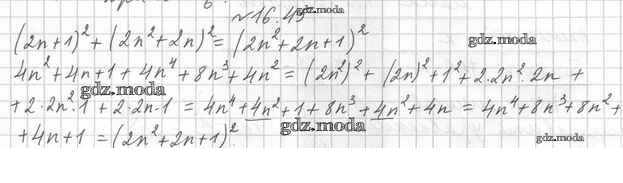 №16.45
gdz.moda
(2n+1)² + (2n²+2n)² = (2n²+2n+1)²
gdz.moda
4n²+4n+1+4n⁴+8n³+4n² = (2n²)²+(2n)²+1²+2·2n²·2n +
gdz.moda
+2·2n²·1+2·2n·1 = 4n⁴+4n²+1+8n³+4n²+4n = 4n⁴+8n³+8n²+
gdz.moda
+4n+1 = (2n²+2n+1)²
gdz.moda